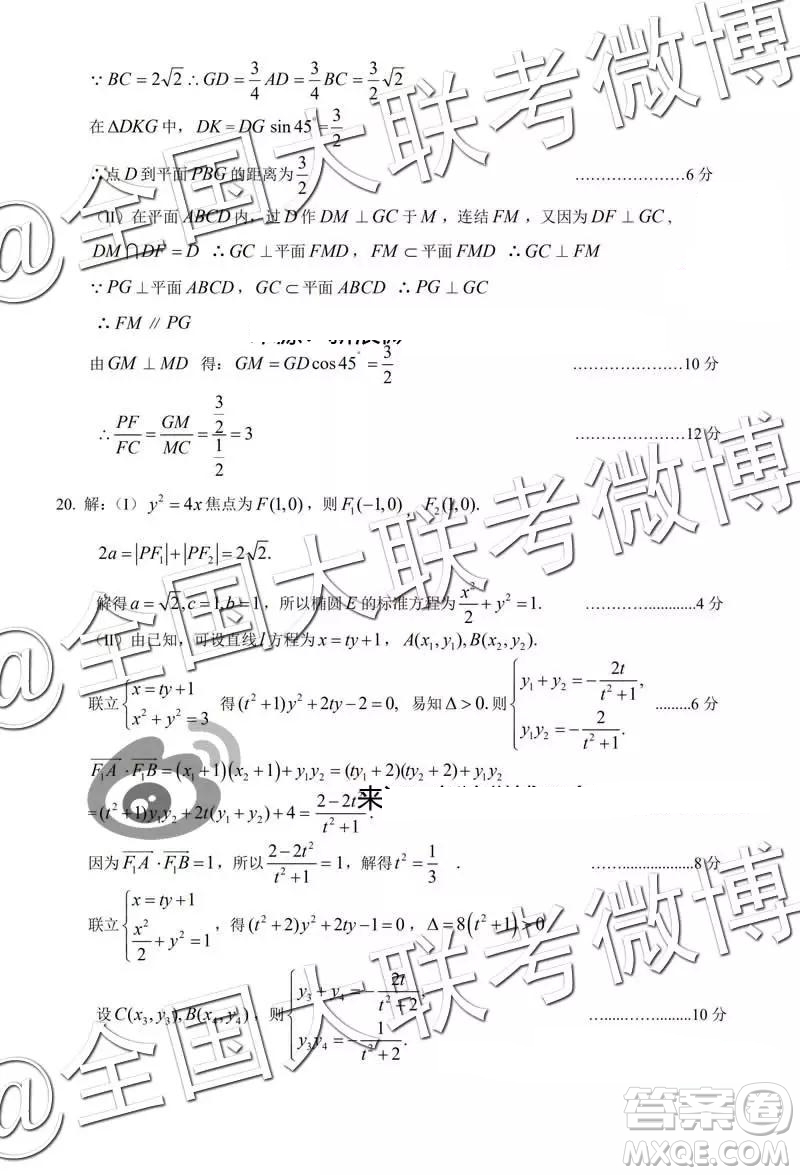 ∵ BC = 2√2 ∴ GD = 3/4 AD = 3/4 BC = 3/2 √2
在 ΔDKG 中，DK = DG sin 45° = 3/2
∴点 D 到平面 PBG 的距离为 3/2 …………………6 分
（II）在平面 ABCD 内，过 D 作 DM ⊥ GC 于 M，连结 FM，又因为 DF ⊥ GC，
DM ⋂ DF = D ∴ GC ⊥平面 FMD，FM ⊂ 平面 FMD ∴ GC ⊥ FM
∵ PG ⊥平面 ABCD，GC ⊂ 平面 ABCD ∴ PG ⊥ GC
∴ FM ∥ PG
由 GM ⊥ MD 得：GM = GD cos 45° = 3/2 …………………10 分
∴ PF/FC = GM/MC = (3/2)/(1/2) = 3 …………………12 分
20. 解：（I）y² = 4x 焦点为 F(1,0)，则 F₁(−1,0)，F₂(1,0).
2a = |PF₁| + |PF₂| = 2√2.
解得 a = √2, c = 1, b = 1，所以椭圆 E 的标准方程为 x²/2 + y² = 1. …………...........4 分
（II）由已知，可设直线 l 方程为 x = ty + 1，A(x₁, y₁), B(x₂, y₂).
联立 { x = ty + 1  x² + y² = 3 得 (t² + 1)y² + 2ty − 2 = 0, 易知 Δ > 0. 则 { y₁ + y₂ = −2t/(t² + 1),  y₁y₂ = −2/(t² + 1). .........6 分
F₁A · F₁B = (x₁ + 1)(x₂ + 1) + y₁y₂ = (ty₁ + 2)(ty₂ + 2) + y₁y₂
= (t² + 1)y₁y₂ + 2t(y₁ + y₂) + 4 = (2 − 2t²)/(t² + 1).
因为 F₁A · F₁B = 1，所以 (2 − 2t²)/(t² + 1) = 1，解得 t² = 1/3 . ……....................8 分
联立 { x = ty + 1  x²/2 + y² = 1 ，得 (t² + 2)y² + 2ty − 1 = 0，Δ = 8(t² + 1) > 0
设 C(x₃, y₃), B(x₄, y₄)，则 { y₃ + y₄ = −2t/(t² + 2),  y₃y₄ = −1/(t² + 2). ...……..........10 分
@全国大联考微博
@全国大联考微博
@全国大联考微博
答案卷
MXQE.COM